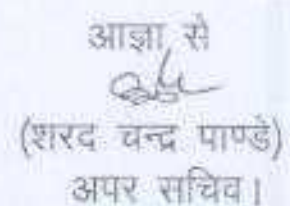 आज्ञा से
(शरद चन्द्र पाण्डे)
अपर सचिव।